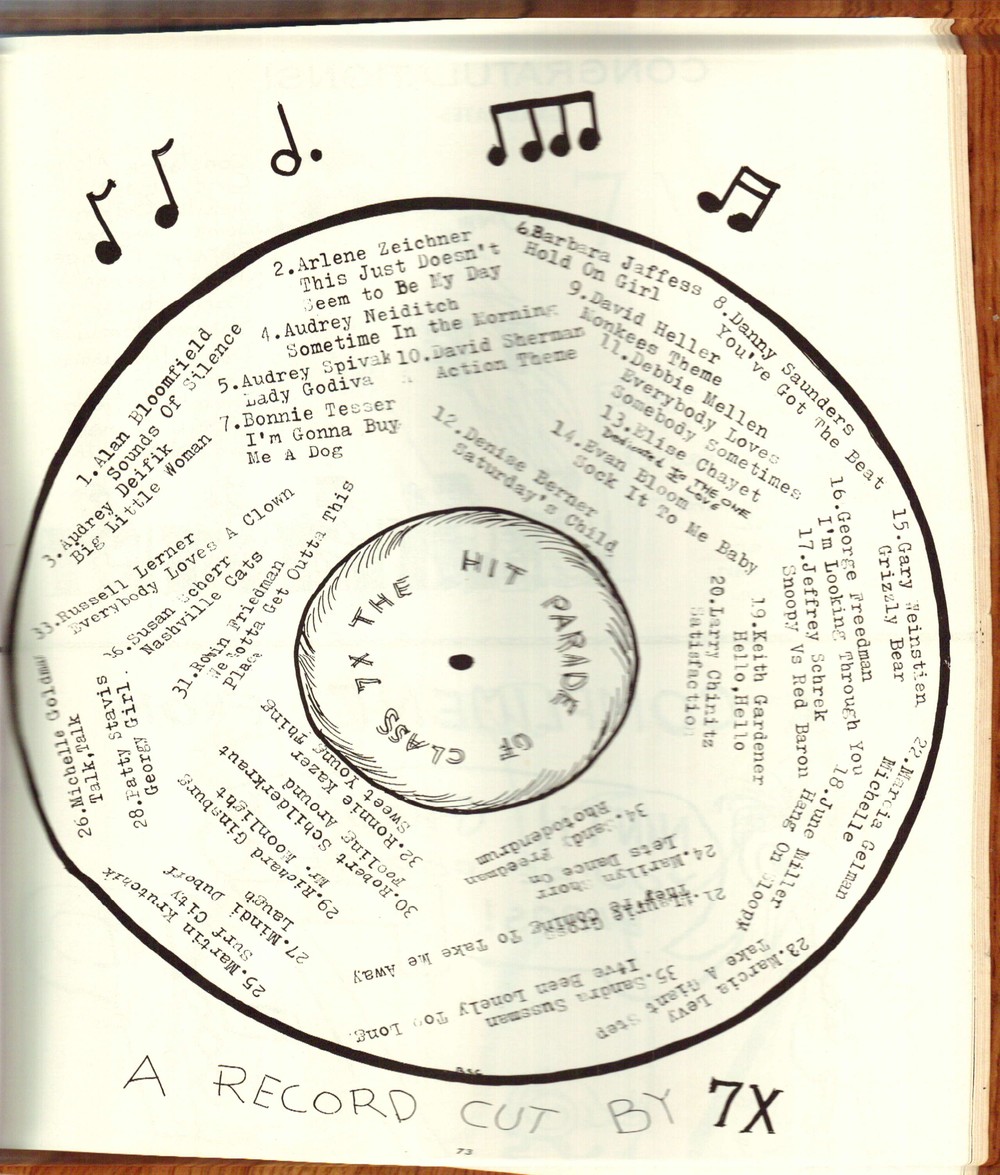 1.Alan Bloomfield
Sounds Of Silence
2.Arlene Zeichner
This Just Doesn't
Seem to Be My Day
3.Audrey Deifik
Big Little Woman
4.Audrey Neiditch
Sometime In the Morning
5.Audrey Spivak
Lady Godiva
6.Barbara Jaffess
Hold On Girl
7.Bonnie Tesser
I'm Gonna Buy
Me A Dog
8.Danny Saunders
You've Got The Beat
9.David Heller
Monkees Theme
10.David Sherman
Action Theme
11.Debbie Mellen
Everybody Loves
Somebody Sometimes
12.Denise Berner
Saturday's Child
13.Elise Chayet
Dedicated To THE ONE
I LOVE
14.Evan Bloom
Sock It To Me Baby
15.Gary Weinstein
Grizzly Bear
16.George Freedman
I'm Looking Through You
17.Jeffrey Schrek
Snoopy Vs Red Baron
18.June Miller
Hang On Sloopy
19.Keith Gardener
Hello,Hello
20.Larry Chinitz
Satisfaction
21.Laurie Gross
They're Coming To Take Me Away
22.Marcia Gelman
Michelle
23.Marcia Levy
Take A Giant Step
24.Marilyn Shorr
Lets Dance On
25.Martin Krutchik
Surf City
26.Michelle Goldman
Talk,Talk
27.Mindi Duboff
Laugh
28.Patty Stavis
Georgy Girl
29.Richard Ginsburg
Mr. Moonlight
30.Robert Schilderkraut
Fooling Around
31.Robin Friedman
We Gotta Get Outta This
Place
32.Ronnie Kazer
Sweet Young Thing
33.Russell Lerner
Everybody Loves A Clown
34.Sandy Freedman
Rhotodendrum
35.Sandra Sussman
I've Been Lonely Too Long
36.Susan Scherr
Nashville Cats
THE HIT PARADE OF CLASS 7X
A RECORD CUT BY 7X
73